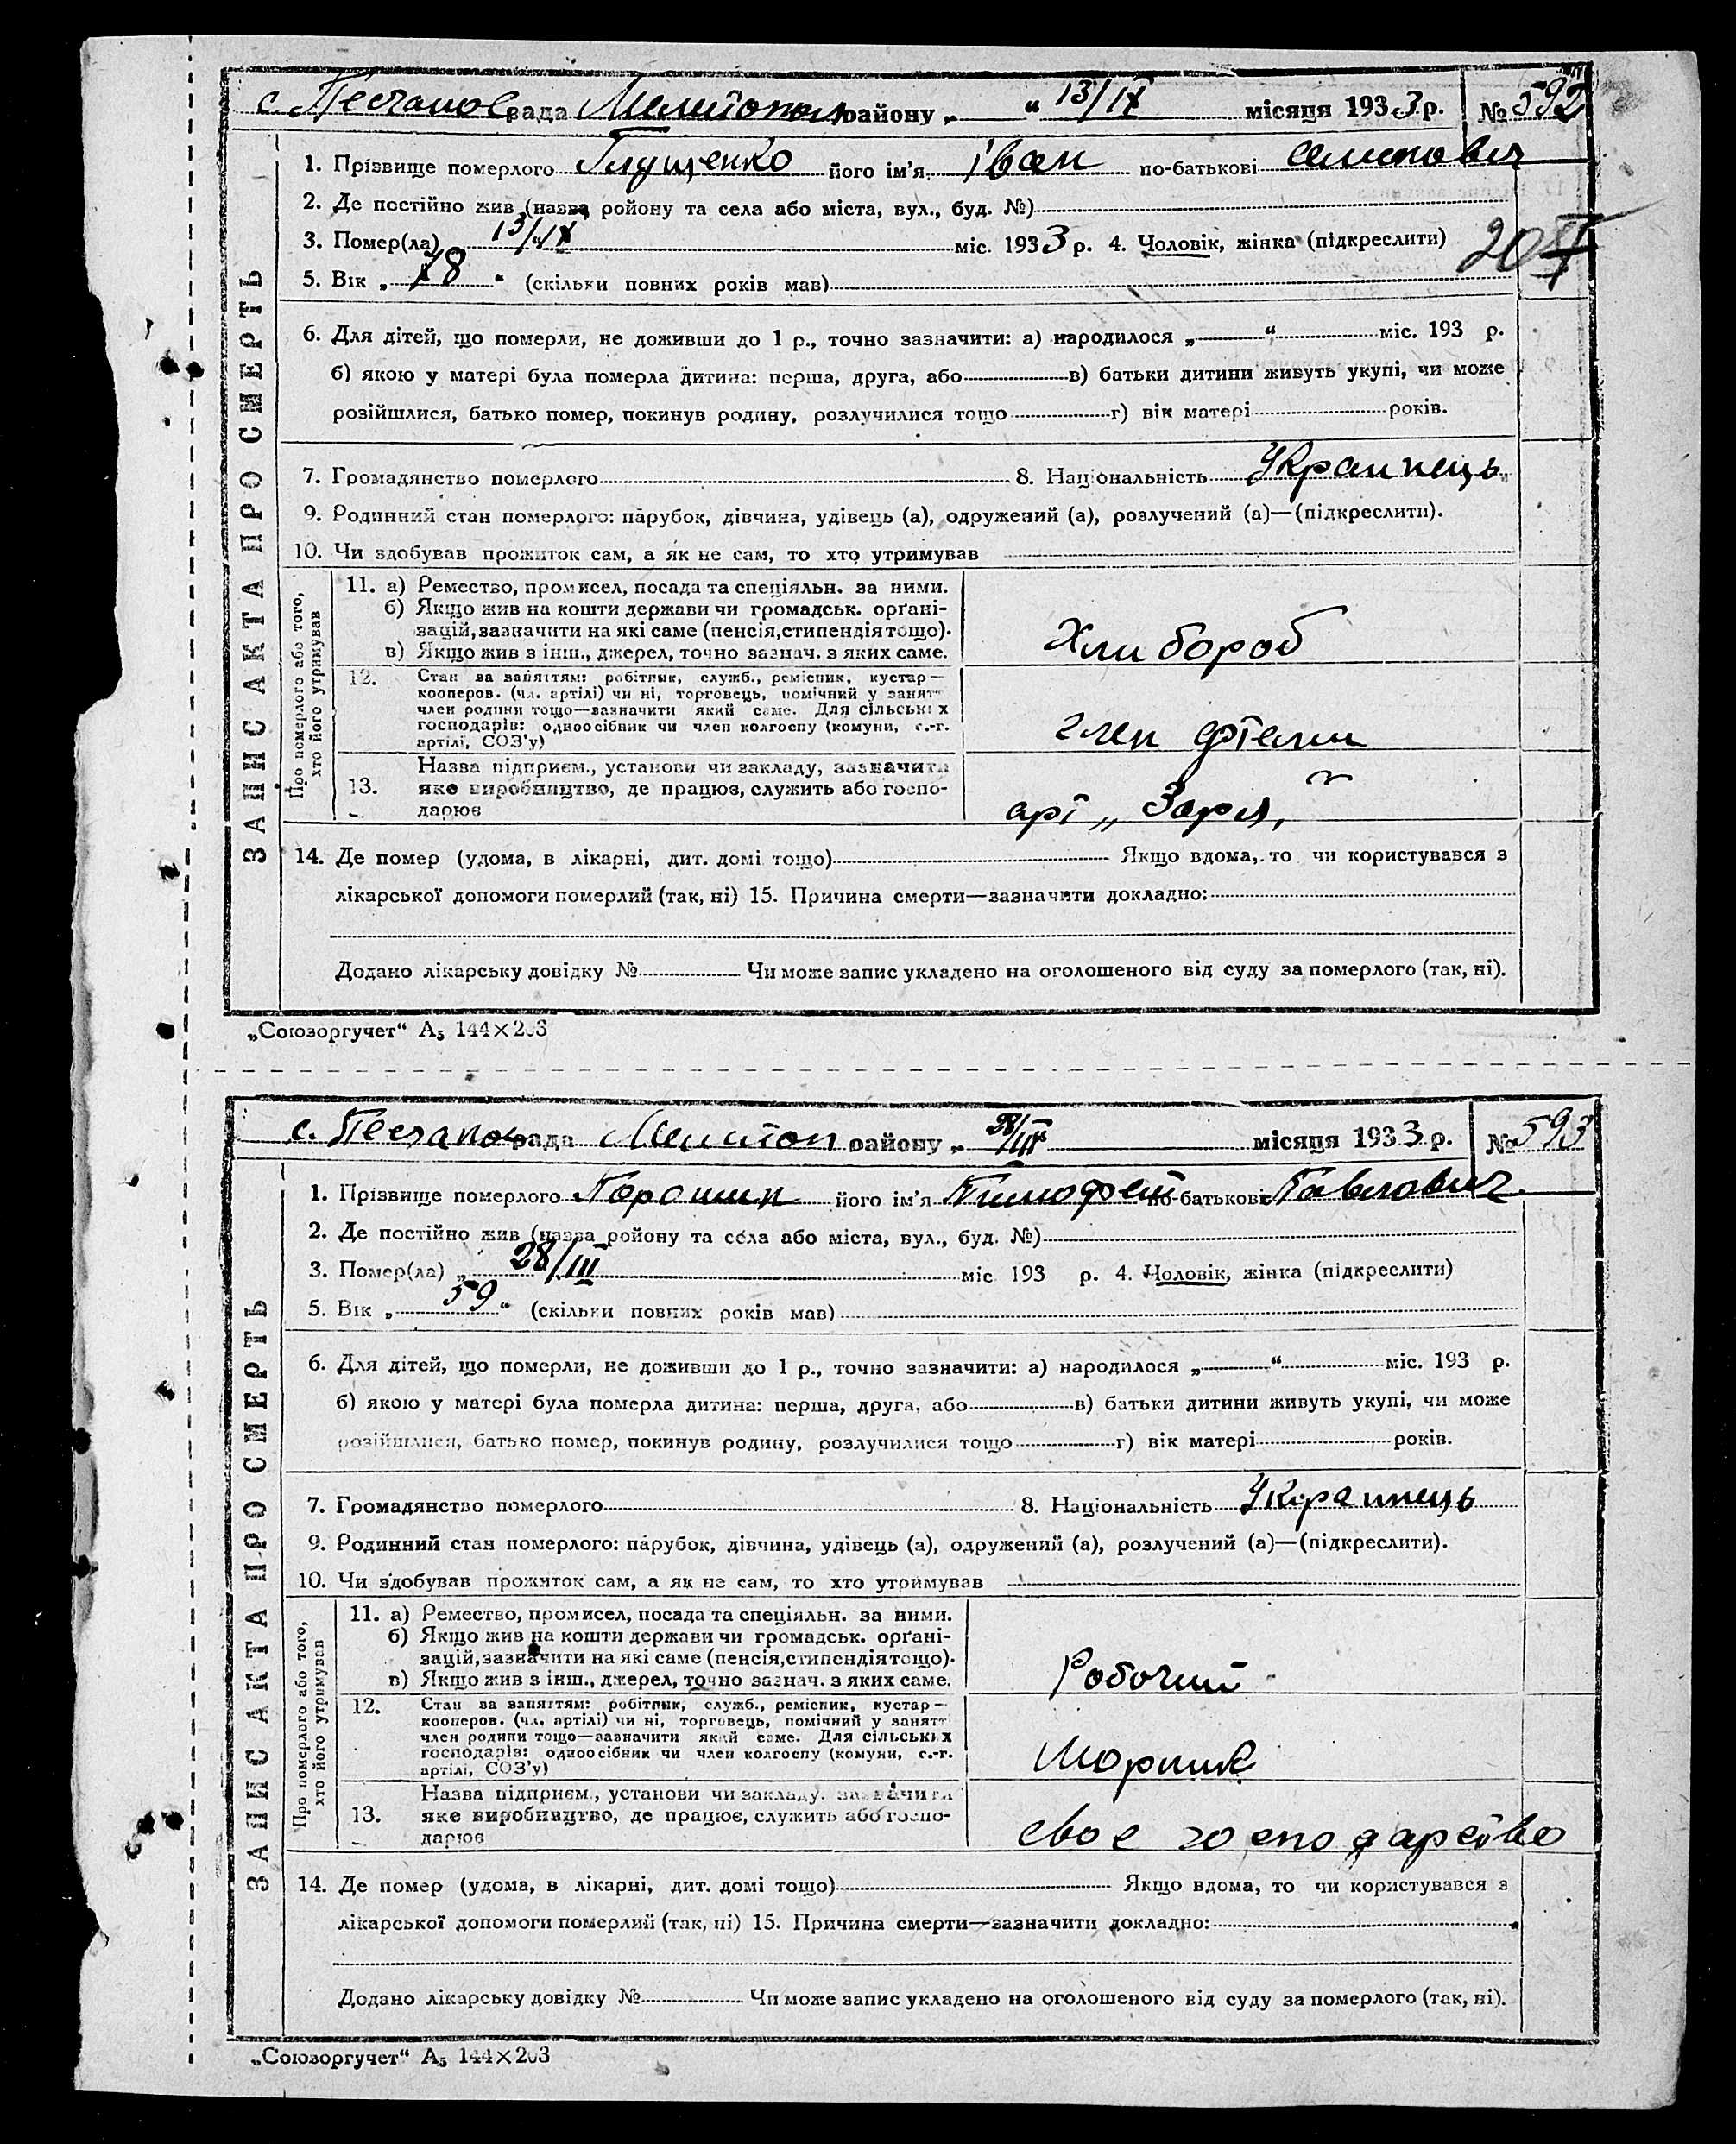 с. Песчанов рада Мелитопол району „ “ 13/IX місяця 1933 р. № 592
1. Прізвище померлого Глущенко його ім'я Іван по-батькові Семенович
2. Де постійно жив (назва ройону та села або міста, вул., буд. №)
3. Помер(ла) „ 13/IX міс. 1933 р. 4. Чоловік, жінка (підкреслити)
5. Вік „ 78 “ (скільки повних років мав)
6. Для дітей, що померли, не доживши до 1 р., точно зазначити: а) народилося „ “ міс. 193 р.
б) якою у матері була померла дитина: перша, друга, або в) батьки дитини живуть укупі, чи може
розійшлися, батько помер, покинув родину, розлучилися тощо г) вік матері років.
7. Громадянство померлого 8. Національність Украинець
9. Родинний стан померлого: парубок, дівчина, удівець (а), одружений (а), розлучений (а)—(підкреслити).
10. Чи здобував прожиток сам, а як не сам, то хто утримував
ЗАПИС АКТА ПРО СМЕРТЬ
Про померлого або того,
хто його утримував
11. а) Ремество, промисел, посада та спеціяльн. за ними.
б) Якщо жив на кошти держави чи громадськ. орґані-
зацій, зазначити на які саме (пенсія, стипендія тощо).
в) Якщо жив з інш., джерел, точно зазнач. з яких саме.
Хлибороб
12. Стан за заняттям: робітник, служб., ремісник, кустар—
кооперов. (чл. артілі) чи ні, торговець, помічний у занятт
член родини тощо—зазначити який саме. Для сільських
господарів: одноосібник чи член колгоспу (комуни, с.-г.
артілі, СОЗ'у)
член
13. Назва підприєм., установи чи закладу, зазначити
яке виробництво, де працює, служить або госпо-
дарює
арт „Заря,
14. Де помер (удома, в лікарні, дит. домі тощо) Якщо вдома, то чи користувався з
лікарської допомоги померлий (так, ні) 15. Причина смерти—зазначити докладно:
Додано лікарську довідку № Чи може запис укладено на оголошеного від суду за померлого (так, ні).
„Союзоргучет“ А5 144×203
с. Песчанов рада Мелитоп району „ 28/III місяця 1933 р. № 593
1. Прізвище померлого Горошин його ім'я Тимофей по-батькові Павлович
2. Де постійно жив (назва ройону та села або міста, вул., буд. №)
3. Помер(ла) „ 28/III міс 193 р. 4. Чоловік, жінка (підкреслити)
5. Вік „ 59 “ (скільки повних років мав)
6. Для дітей, що померли, не доживши до 1 р., точно зазначити: а) народилося „ “ міс. 193 р.
б) якою у матері була померла дитина: перша, друга, або в) батьки дитини живуть укупі, чи може
розійшлися, батько помер, покинув родину, розлучилися тощо г) вік матері років.
7. Громадянство померлого 8. Національність Украинець
9. Родинний стан померлого: парубок, дівчина, удівець (а), одружений (а), розлучений (а)—(підкреслити).
10. Чи здобував прожиток сам, а як не сам, то хто утримував
ЗАПИС АКТА ПРО СМЕРТЬ
Про померлого або того,
хто його утримував
11. а) Ремество, промисел, посада та спеціяльн. за ними.
б) Якщо жив на кошти держави чи громадськ. орґані-
зацій, зазначити на які саме (пенсія, стипендія тощо).
в) Якщо жив з інш., джерел, точно зазнач. з яких саме.
Робочий
12. Стан за заняттям: робітник, служб., ремісник, кустар—
кооперов. (чл. артілі) чи ні, торговець, помічний у занятт
член родини тощо—зазначити який саме. Для сільських
господарів: одноосібник чи член колгоспу (комуни, с.-г.
артілі, СОЗ'у)
Шорник
13. Назва підприєм., установи чи закладу, зазначити
яке виробництво, де працює, служить або госпо-
дарює
своє господарство
14. Де помер (удома, в лікарні, дит. домі тощо) Якщо вдома, то чи користувався з
лікарської допомоги померлий (так, ні) 15. Причина смерти—зазначити докладно:
Додано лікарську довідку № Чи може запис укладено на оголошеного від суду за померлого (так, ні).
„Союзоргучет“ А5 144×203